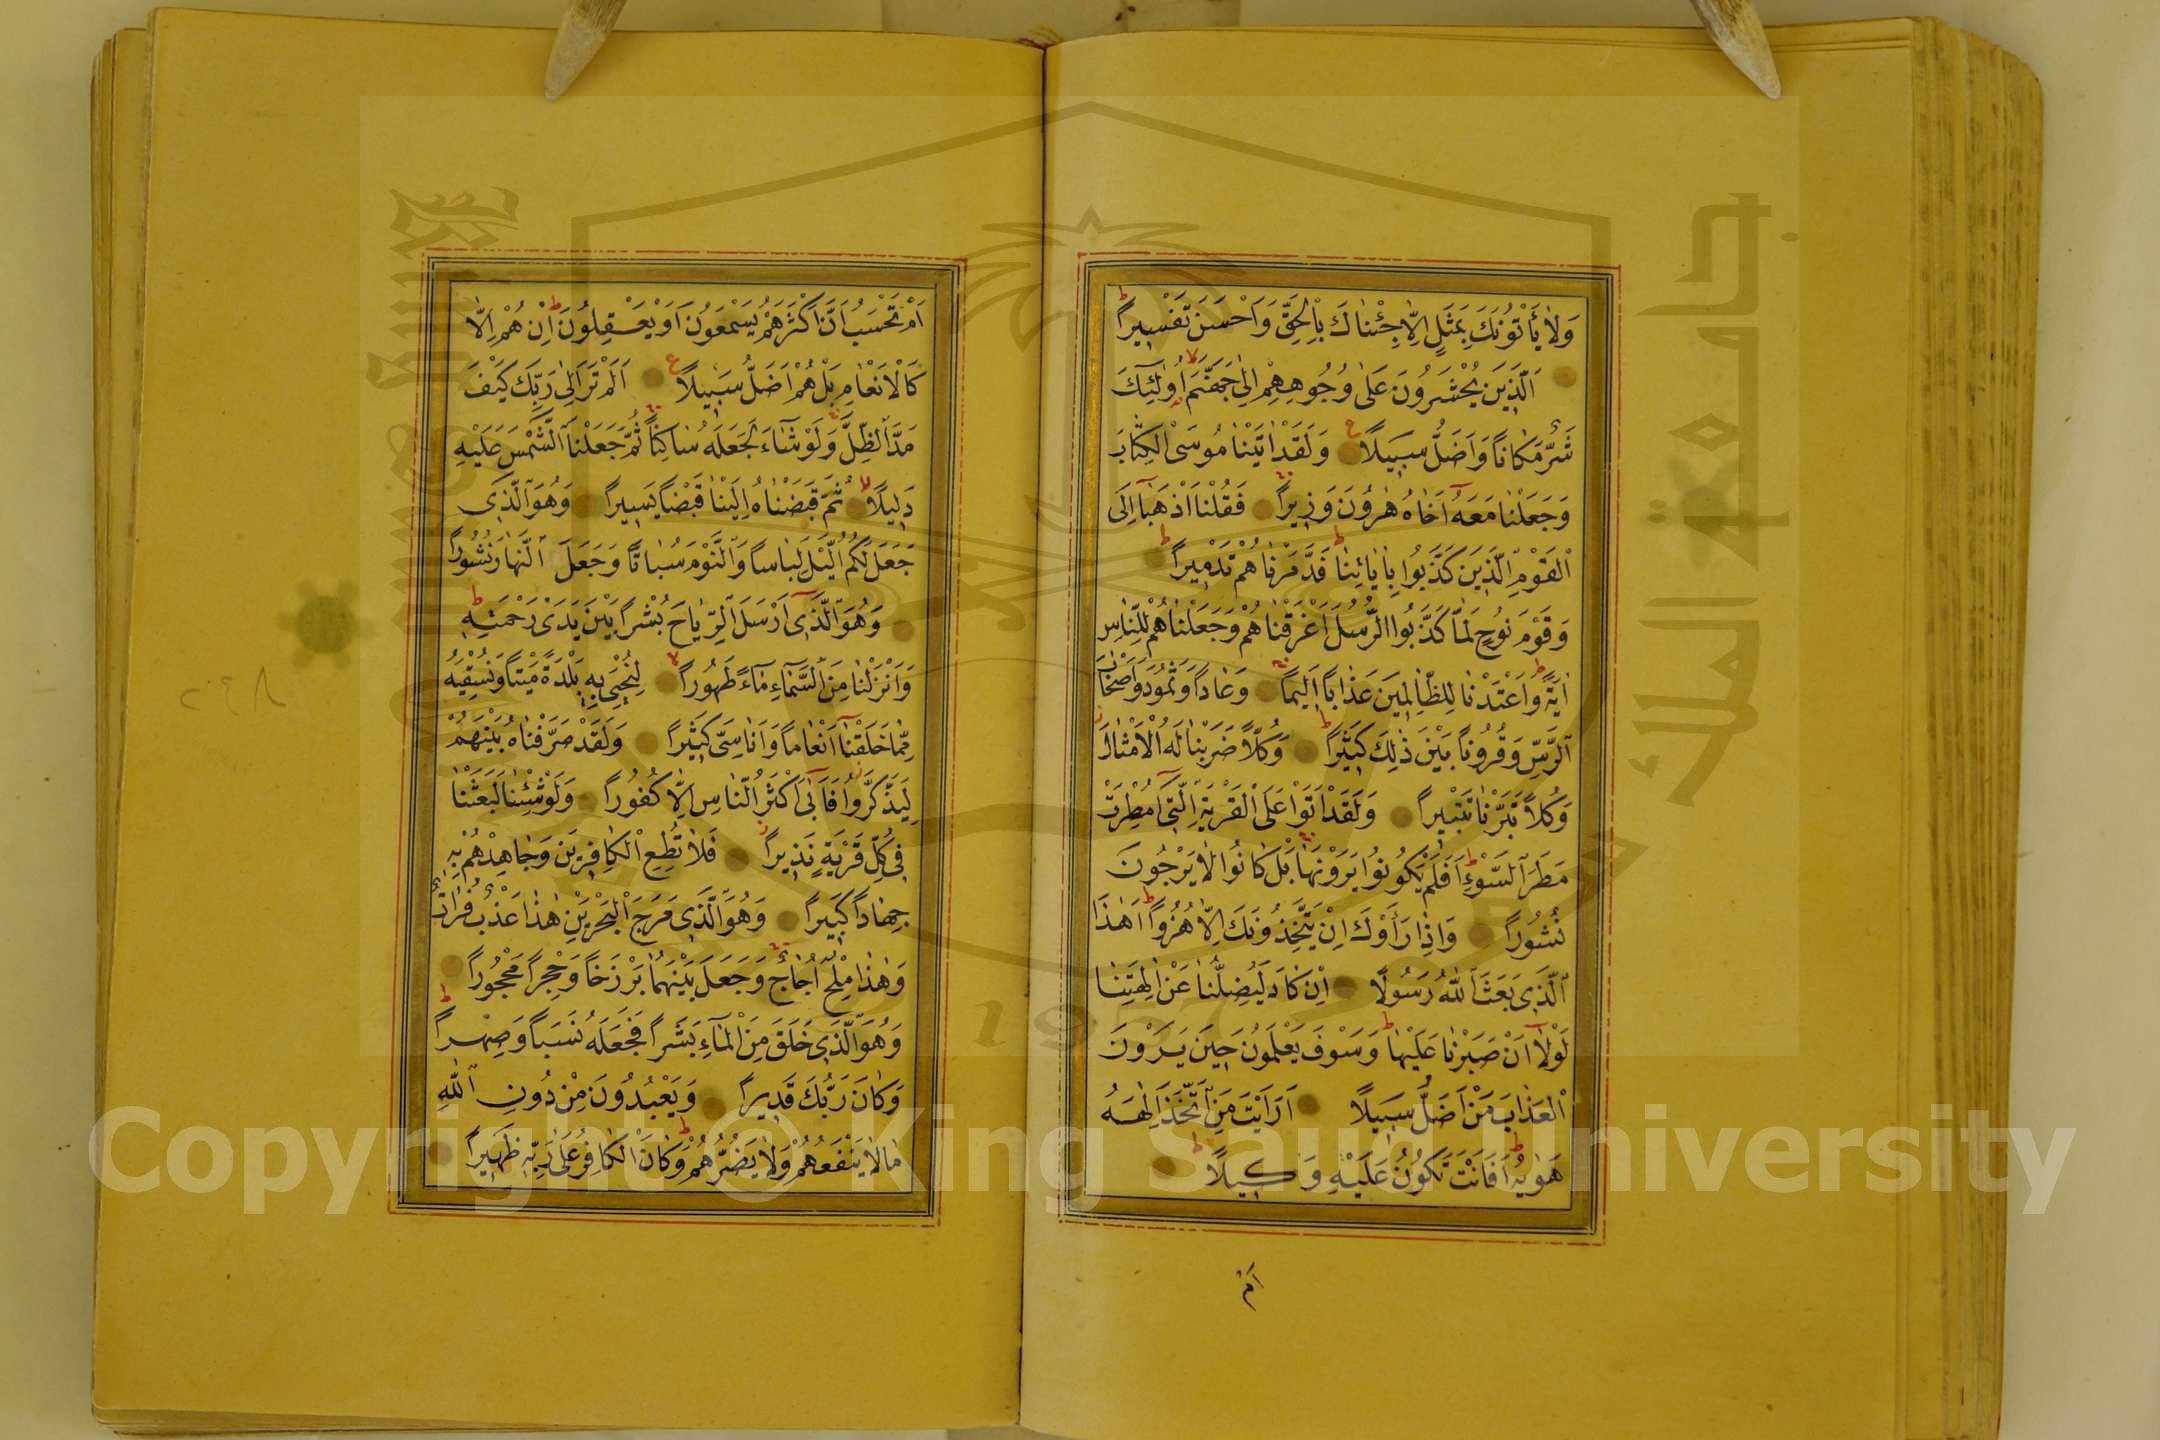 وَلَا يَأْتُونَكَ بِمَثَلٍ اِلَّا جِئْنَاكَ بِالْحَقِّ وَاَحْسَنَ تَفْسِيراً
اَلَّذِينَ يُحْشَرُونَ عَلٰى وُجُوهِهِمْ اِلٰى جَهَنَّمَ اُولٰئِكَ
شَرٌّ مَكَاناً وَاَضَلُّ سَبِيلاً وَلَقَدْ اٰتَيْنَا مُوسَى الْكِتَابَ
وَجَعَلْنَا مَعَهُ اَخَاهُ هٰرُونَ وَزِيراً فَقُلْنَا اذْهَبَا اِلَى
الْقَوْمِ الَّذِينَ كَذَّبُوا بِاٰيَاتِنَا فَدَمَّرْنَاهُمْ تَدْمِيراً
وَقَوْمَ نُوحٍ لَمَّا كَذَّبُوا الرُّسُلَ اَغْرَقْنَاهُمْ وَجَعَلْنَاهُمْ لِلنَّاسِ
اٰيَةً وَاَعْتَدْنَا لِلظَّالِمِينَ عَذَاباً اَلِيماً وَعَاداً وَثَمُودَ وَاَصْحَابَ
الرَّسِّ وَقُرُوناً بَيْنَ ذٰلِكَ كَثِيراً وَكُلّاً ضَرَبْنَا لَهُ الْاَمْثَالَ
وَكُلّاً تَبَّرْنَا تَتْبِيراً وَلَقَدْ اَتَوْا عَلَى الْقَرْيَةِ الَّتِي اُمْطِرَتْ
مَطَرَ السَّوْءِ اَفَلَمْ يَكُونُوا يَرَوْنَهَا بَلْ كَانُوا لَا يَرْجُونَ
نُشُوراً وَاِذَا رَاَوْكَ اِنْ يَتَّخِذُونَكَ اِلَّا هُزُواً اَهٰذَا
الَّذِي بَعَثَ اللّٰهُ رَسُولاً اِنْ كَادَ لَيُضِلُّنَا عَنْ اٰلِهَتِنَا
لَوْلَا اَنْ صَبَرْنَا عَلَيْهَا وَسَوْفَ يَعْلَمُونَ حِينَ يَرَوْنَ
الْعَذَابَ مَنْ اَضَلُّ سَبِيلاً اَرَاَيْتَ مَنِ اتَّخَذَ اِلٰهَهُ
هَوٰيهُ اَفَاَنْتَ تَكُونُ عَلَيْهِ وَكِيلاً
اَمْ
اَمْ تَحْسَبُ اَنَّ اَكْثَرَهُمْ يَسْمَعُونَ اَوْ يَعْقِلُونَ اِنْ هُمْ اِلَّا
كَالْاَنْعَامِ بَلْ هُمْ اَضَلُّ سَبِيلاً اَلَمْ تَرَ اِلٰى رَبِّكَ كَيْفَ
مَدَّ الظِّلَّ وَلَوْ شَاءَ لَجَعَلَهُ سَاكِناً ثُمَّ جَعَلْنَا الشَّمْسَ عَلَيْهِ
دَلِيلاً ثُمَّ قَبَضْنَاهُ اِلَيْنَا قَبْضاً يَسِيراً وَهُوَ الَّذِي
جَعَلَ لَكُمُ الَّيْلَ لِبَاساً وَالنَّوْمَ سُبَاتاً وَجَعَلَ النَّهَارَ نُشُوراً
وَهُوَ الَّذِي اَرْسَلَ الرِّيَاحَ بُشْراً بَيْنَ يَدَيْ رَحْمَتِهِ
وَاَنْزَلْنَا مِنَ السَّمَاءِ مَاءً طَهُوراً لِنُحْيِيَ بِهِ بَلْدَةً مَيْتاً وَنُسْقِيَهُ
مِمَّا خَلَقْنَا اَنْعَاماً وَاَنَاسِيَّ كَثِيراً وَلَقَدْ صَرَّفْنَاهُ بَيْنَهُمْ
لِيَذَّكَّرُوا فَاَبٰى اَكْثَرُ النَّاسِ اِلَّا كُفُوراً وَلَوْ شِئْنَا لَبَعَثْنَا
فِي كُلِّ قَرْيَةٍ نَذِيراً فَلَا تُطِعِ الْكَافِرِينَ وَجَاهِدْهُمْ بِهِ
جِهَاداً كَبِيراً وَهُوَ الَّذِي مَرَجَ الْبَحْرَيْنِ هٰذَا عَذْبٌ فُرَاتٌ
وَهٰذَا مِلْحٌ اُجَاجٌ وَجَعَلَ بَيْنَهُمَا بَرْزَخاً وَحِجْراً مَحْجُوراً
وَهُوَ الَّذِي خَلَقَ مِنَ الْمَاءِ بَشَراً فَجَعَلَهُ نَسَباً وَصِهْراً
وَكَانَ رَبُّكَ قَدِيراً وَيَعْبُدُونَ مِنْ دُونِ اللّٰهِ
مَا لَا يَنْفَعُهُمْ وَلَا يَضُرُّهُمْ وَكَانَ الْكَافِرُ عَلٰى رَبِّهِ ظَهِيراً
Copyright © King Saud University
جامعة الملك سعود